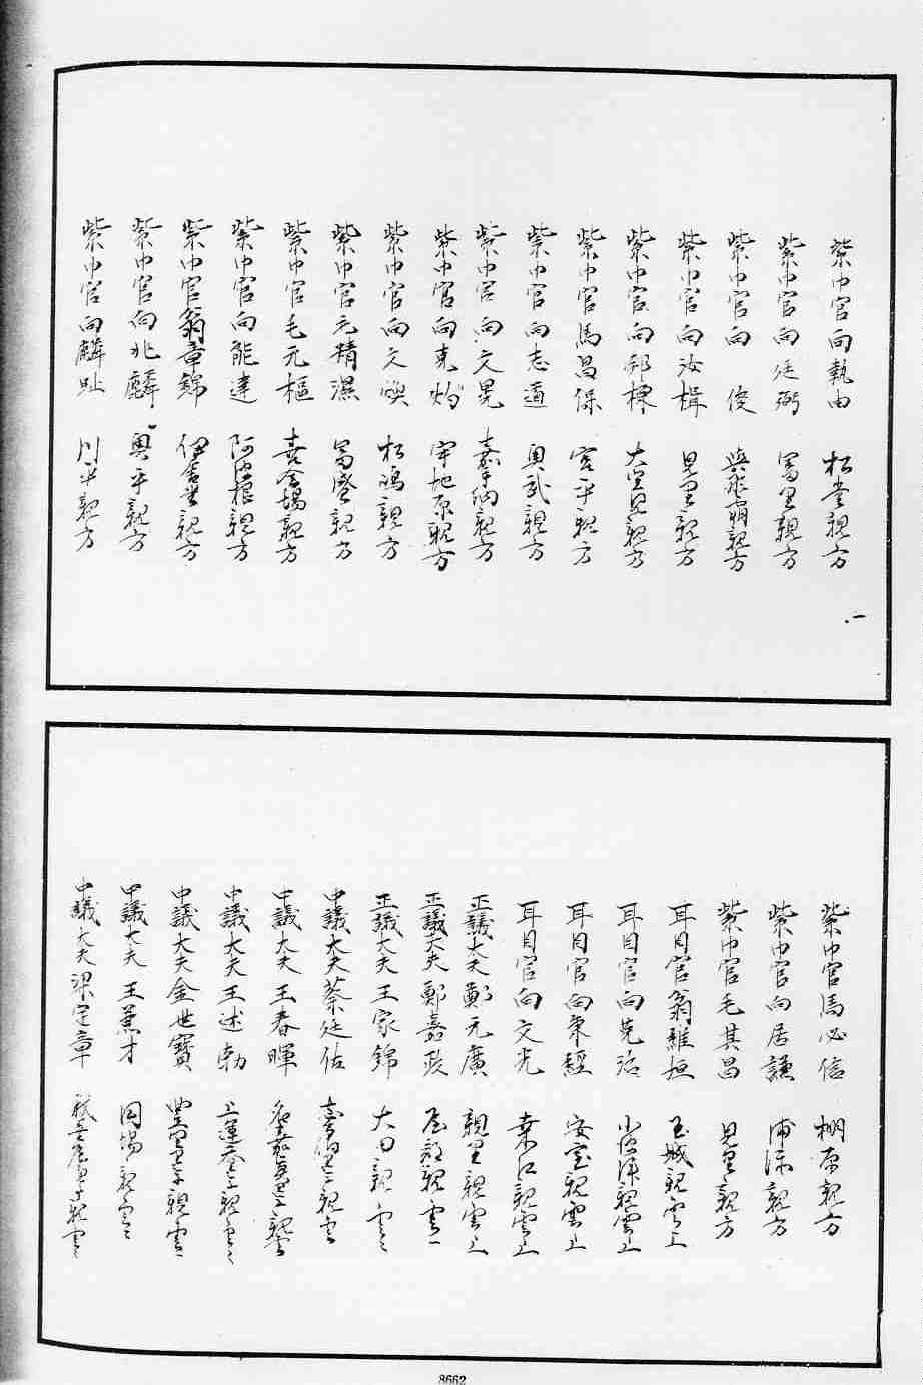 紫巾官向執由 松堂親方
紫巾官向廷弼 冨里親方
紫巾官向 俊 與那覇親方
紫巾官向汝楫 見里親方
紫巾官向邦棟 大里親方
紫巾官馬昌保 宮平親方
紫巾官向志道 奥武親方
紫巾官向文晃 嘉手納親方
紫巾官向克灼 宇地原親方
紫巾官向文煥 松嶋親方
紫巾官元精濕 冨盛親方
紫巾官毛元樞 喜舎場親方
紫巾官向能達 阿波根親方
紫巾官翁章錦 伊舎堂親方
紫巾官向兆麟 奥平親方
紫巾官向麟趾 川平親方
紫巾官馬必信 棚原親方
紫巾官向居謙 浦添親方
紫巾官毛其昌 見里親方
耳目官翁維垣 玉城親雲上
耳目官向 親雲上
耳目官向東經 安室親雲上
耳目官向文光 桑江親雲上
正議大夫鄭元廣 親里親雲上
正議大夫鄭嘉政 屋部親雲上
正議大夫王家錦 大田親雲上
中議大夫蔡廷佑 親雲上
中議大夫王春暉 親雲上
中議大夫王述勒 上運天親雲上
中議大夫金世寶 豊里親雲上
中議大夫王薫才 国場親雲上
中議大夫梁定章 親雲上
8662